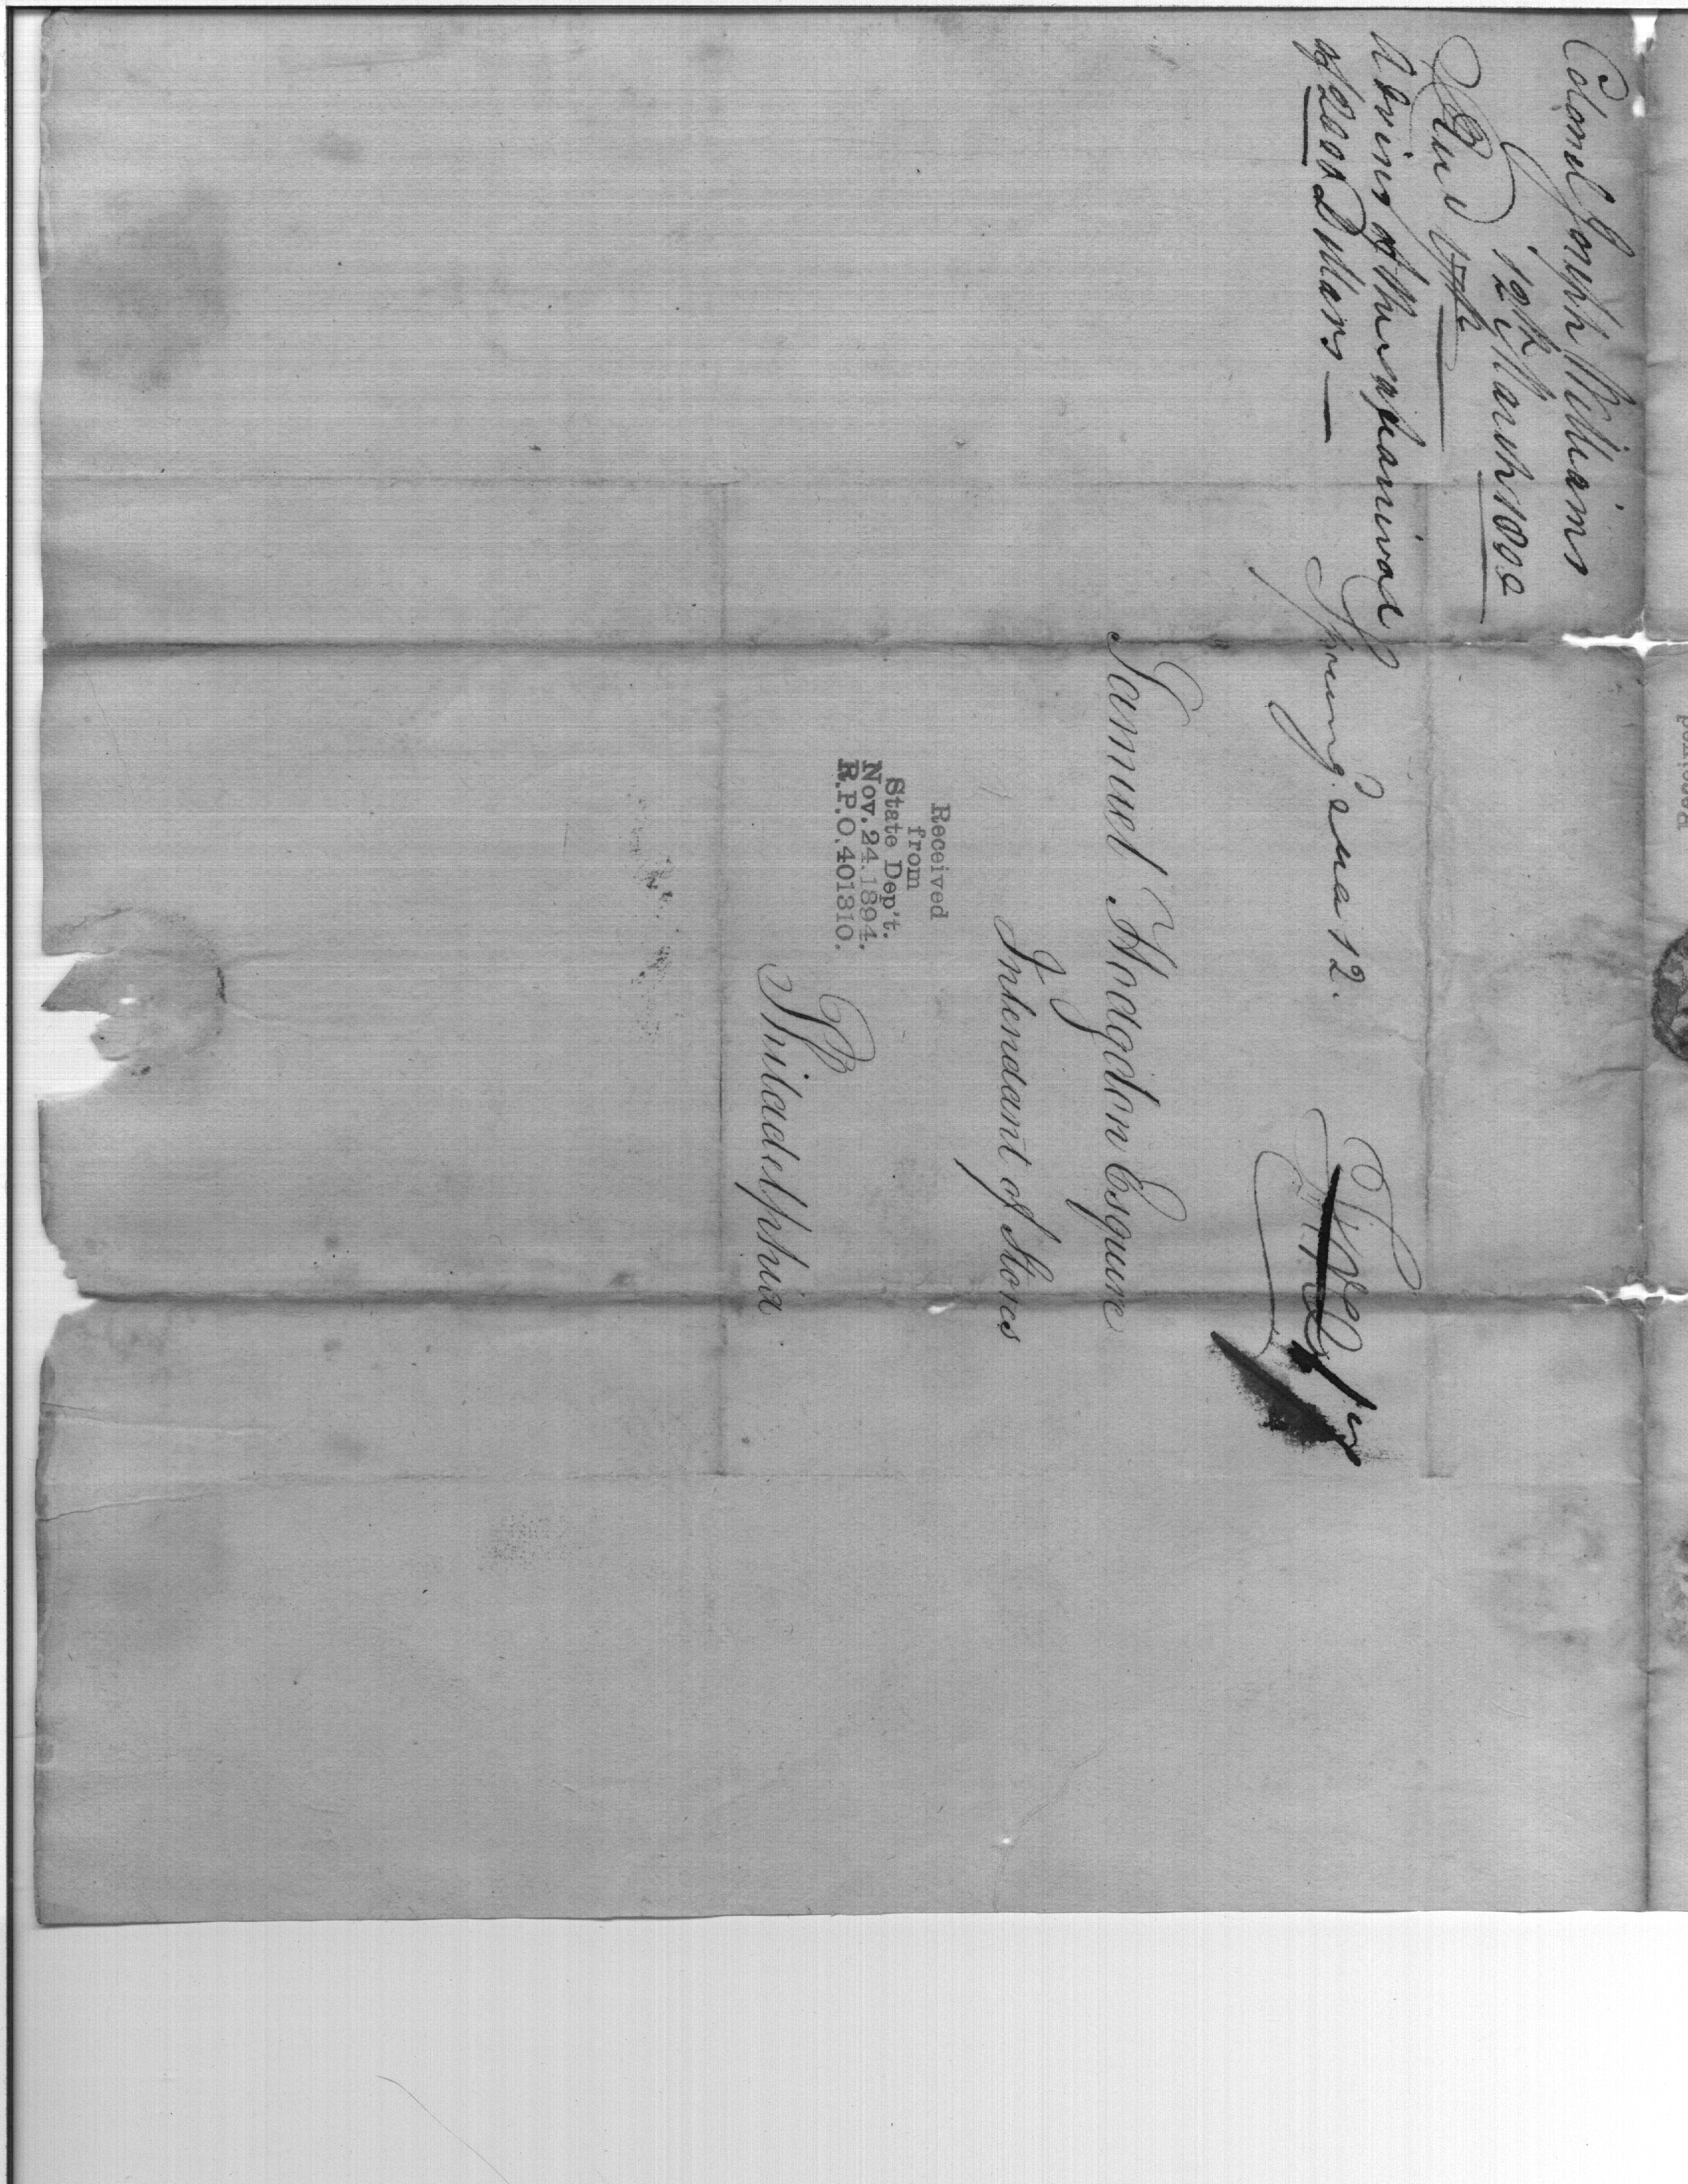 Colonel Joseph Williams
12th March 1800
Recd 19th
Advises of the rec
of 2000 Dollars —
Spring.d mar 12.
Free
Samuel Hodgdon Esquire
Intendant of Stores
Philadelphia
Received
from
State Dep't.
Nov. 24. 1894.
R.P.O. 401310.